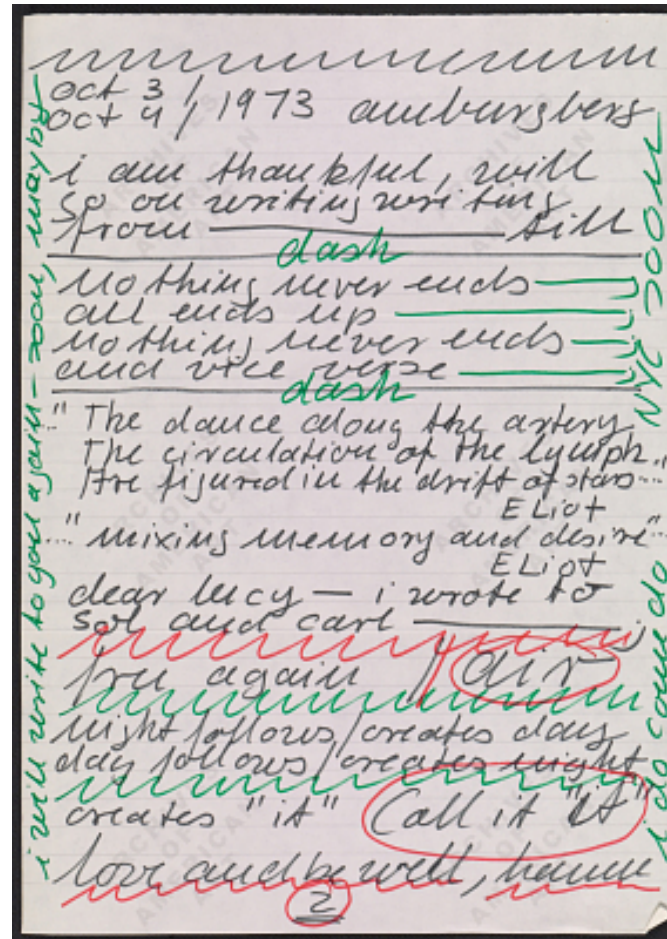 oct 3 /
oct 4 / 1973 amburgberg
i am thankful, will
go on writing writing
from ——— till
dash
nothing never ends —
all ends up —
nothing never ends —
and vice verse —
dash
"The dance along the artery
The circulation of the lymph
Are figured in the drift of stars..."
ELiot
..."mixing memory and desire"...
ELiot
dear lucy — i wrote to
sol and carl ———
free again / air
night follows/creates day
day follows/creates night
creates "it" Call it "it"
love and be well, hanne
2
i will write to you again — soon, maybe
do come do
NYC soon
ARCHIVES
OF
AMERICAN
ART